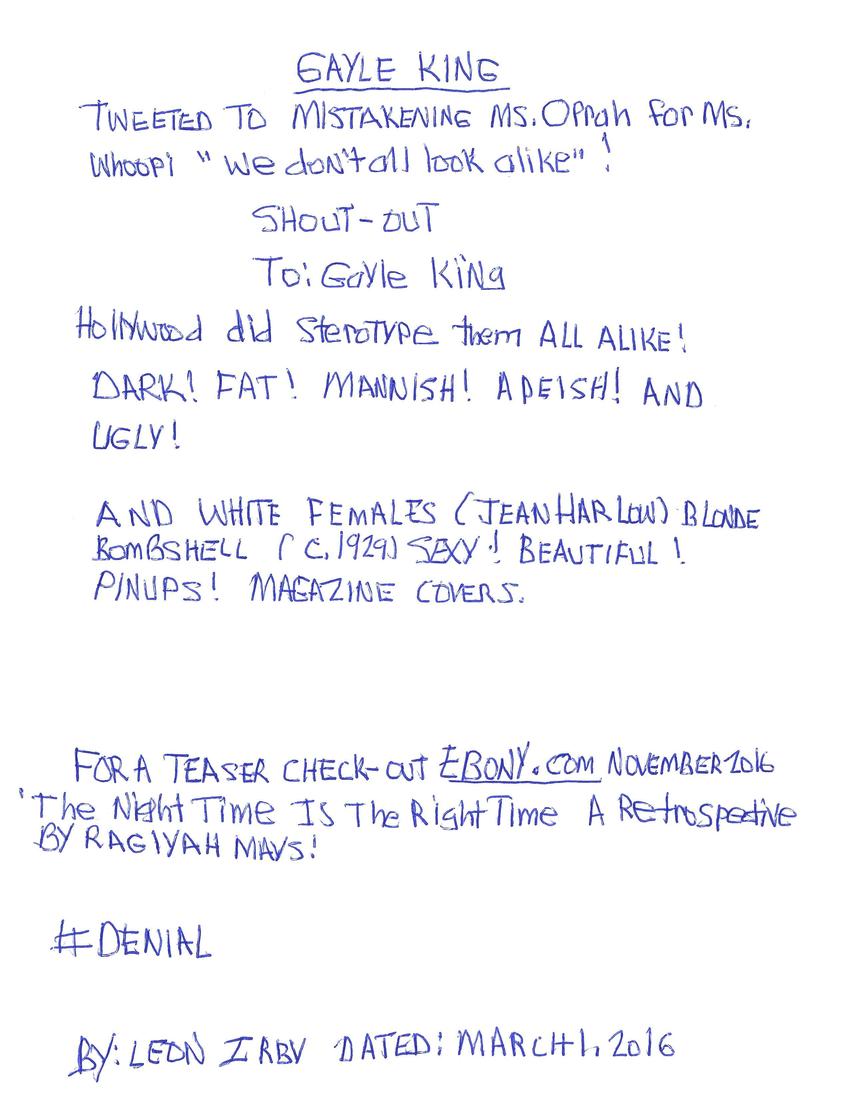 GAYLE KING
TWEETED TO MISTAKENING MS. Oprah for Ms.
Whoopi "we don't all look alike" !
SHOUT-OUT
To: Gayle KiNg
Hollywood did SteroTYPe them ALL ALIKE!
DARK! FAT! MANNISH! APEISH! AND
UGLY!
AND WHITE FEMALES (JEAN HARLOW) BLONDE
BOMBSHELL (C. 1929) SEXY! BEAUTIFUL!
PINUPS! MAGAZINE COVERS.
FOR A TEASER CHECK-OUT EBONY.COM NOVEMBER 2016
'The Night Time Is The Right Time A Retrospective
BY RAGIYAH MAYS!
#DENIAL
BY: LEON IRBY DATED: MARCH 1, 2016